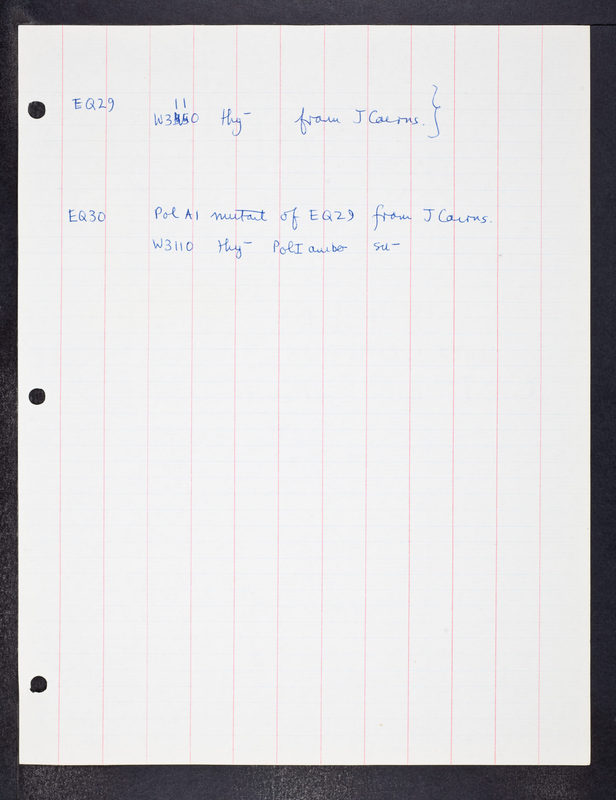 EQ29 W3110 thy⁻ from J Cairns. }
EQ30 Pol A1 mutant of EQ29 from J Cairns.
W3110 thy⁻ Pol I amber su⁻